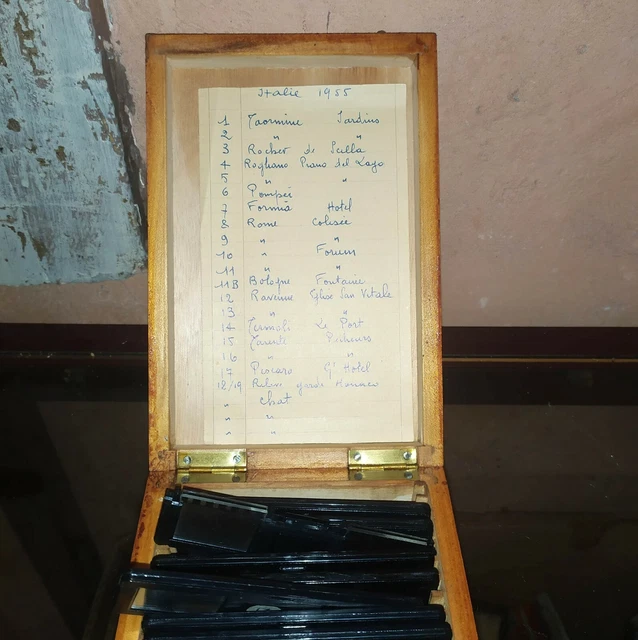 Italie 1955
1 Taormine Jardins
2 " "
3 Rocher de Scilla
4 Rogliano Piano del Lago
5 " "
6 Pompéi
7 Formia Hotel
8 Rome Colisée
9 " "
10 " Forum
11 " "
11B Bologne Fontaine
12 Ravenne Eglise San Vitale
13 " "
14 Termoli Le Port
15 Tarente Pêcheurs
16 " "
17 Pescara Gd Hotel
18/19 garde Monaco
" Chat
" "
" "